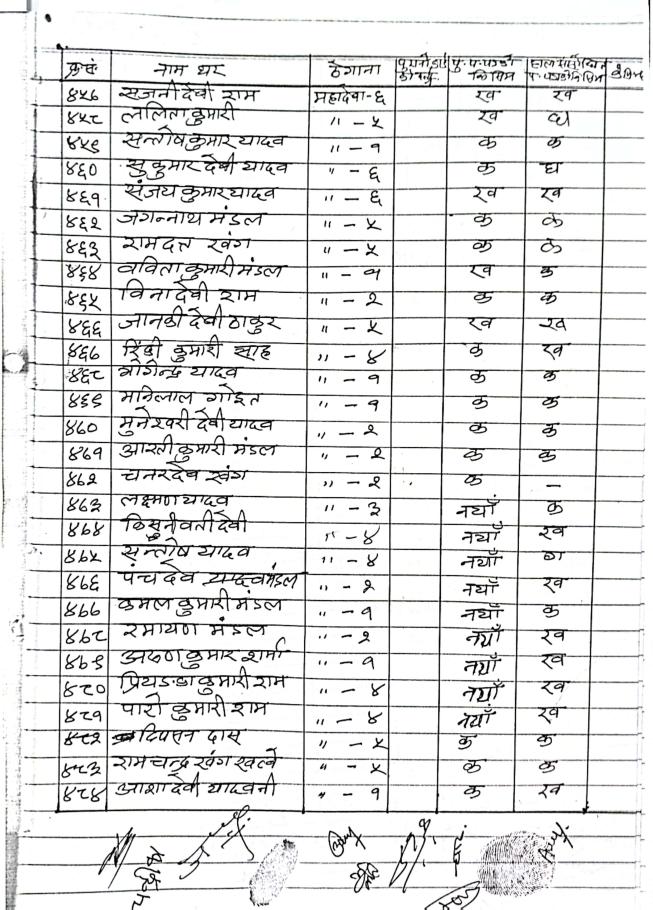 क्र.सं. नाम थर ठेगाना
४५७ सजनी देवी राम महादेवा-६ ख ख
४५८ ललिता कुमारी " - ५ ख घ
४५९ सन्तोष कुमार यादव " - १ क क
४६० सुकुमार देवी यादव " - ६ क घ
४६१ संजय कुमार यादव " - ६ ख ख
४६२ जगन्नाथ मंडल " - ५ क क
४६३ रामदत्त खंग " - ५ क क
४६४ वविता कुमारी मंडल " - १ ख क
४६५ विना देवी राम " - २ क क
४६६ जानकी देवी ठाकुर " - ५ ख ख
४६७ रिंकी कुमारी साह " - ४ क ख
४६८ योगेन्द्र यादव " - १ क क
४६९ मनिलाल गोइत " - १ क क
४७० मुनेश्वरी देवी यादव " - २ क क
४७१ आरती कुमारी मंडल " - २ क क
४७२ चनरदेव खंग " - २ क -
४७३ लक्ष्मण यादव " - ३ नयाँ क
४७४ किसुनीवती देवी " - ४ नयाँ ख
४७५ सन्तोष यादव " - ४ नयाँ ग
४७६ पंचदेव मंडल " - २ नयाँ ख
४७७ कमल कुमारी मंडल " - १ नयाँ क
४७८ रमायण मंडल " - २ नयाँ ख
४७९ अरुण कुमार शर्मा " - १ नयाँ ख
४८० प्रियङका कुमारी राम " - ४ नयाँ ख
४८१ पारो कुमारी राम " - ४ नयाँ ख
४८२ दास " - ५ क क
४८३ रामचन्द्र खंग खत्वे " - ५ क क
४८४ आशा देवी यादवनी " - १ क ख